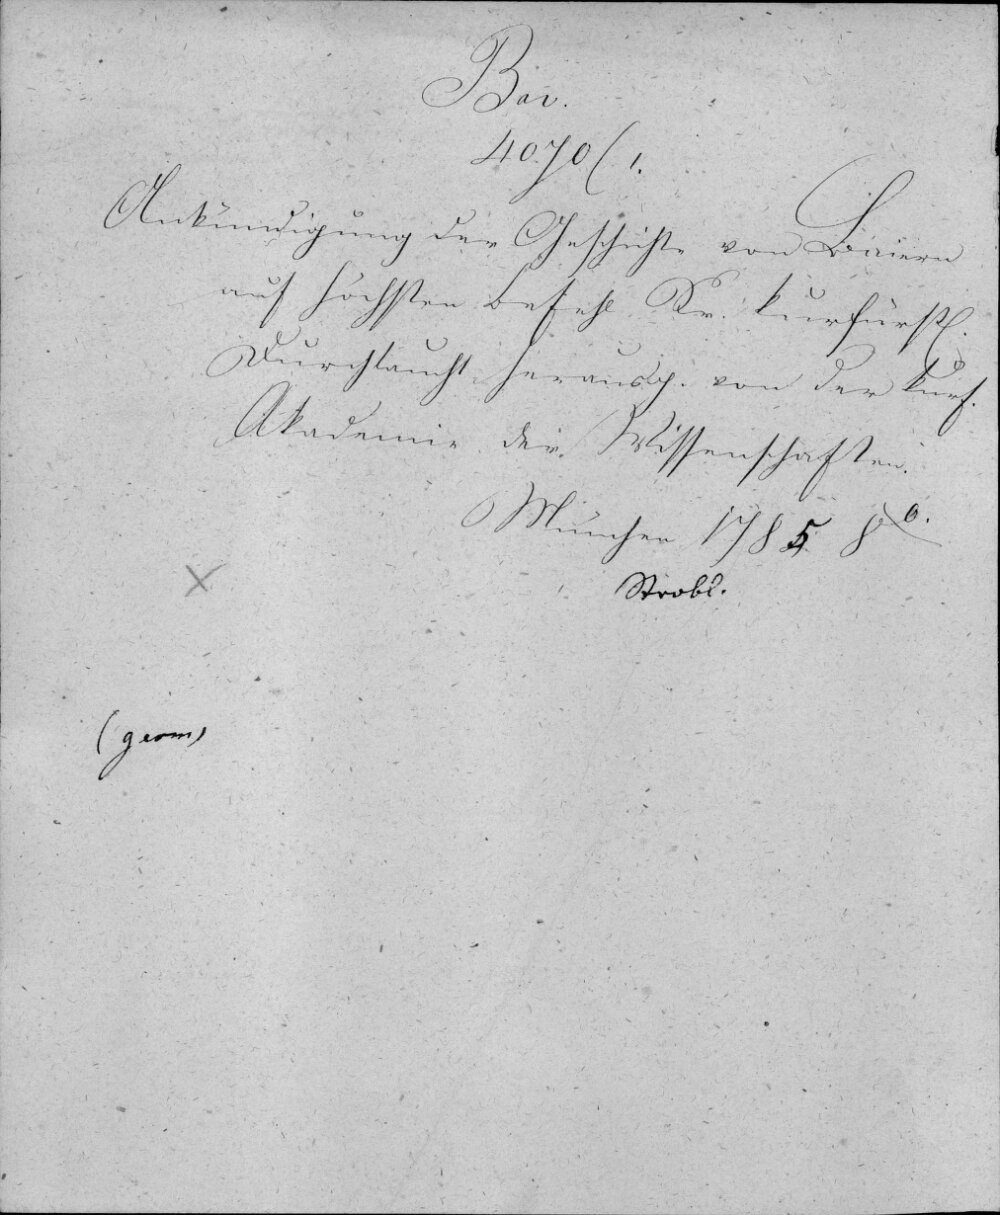 Bav.
4070 (1.
Ankündigung der Geschichte von Baiern
auf höchsten Befehl Sr. kurfürstl.
Durchlaucht herausg. von der kurf.
Akademie der Wissenschaften.
München 1785 8o.
Strobl.
(germ)